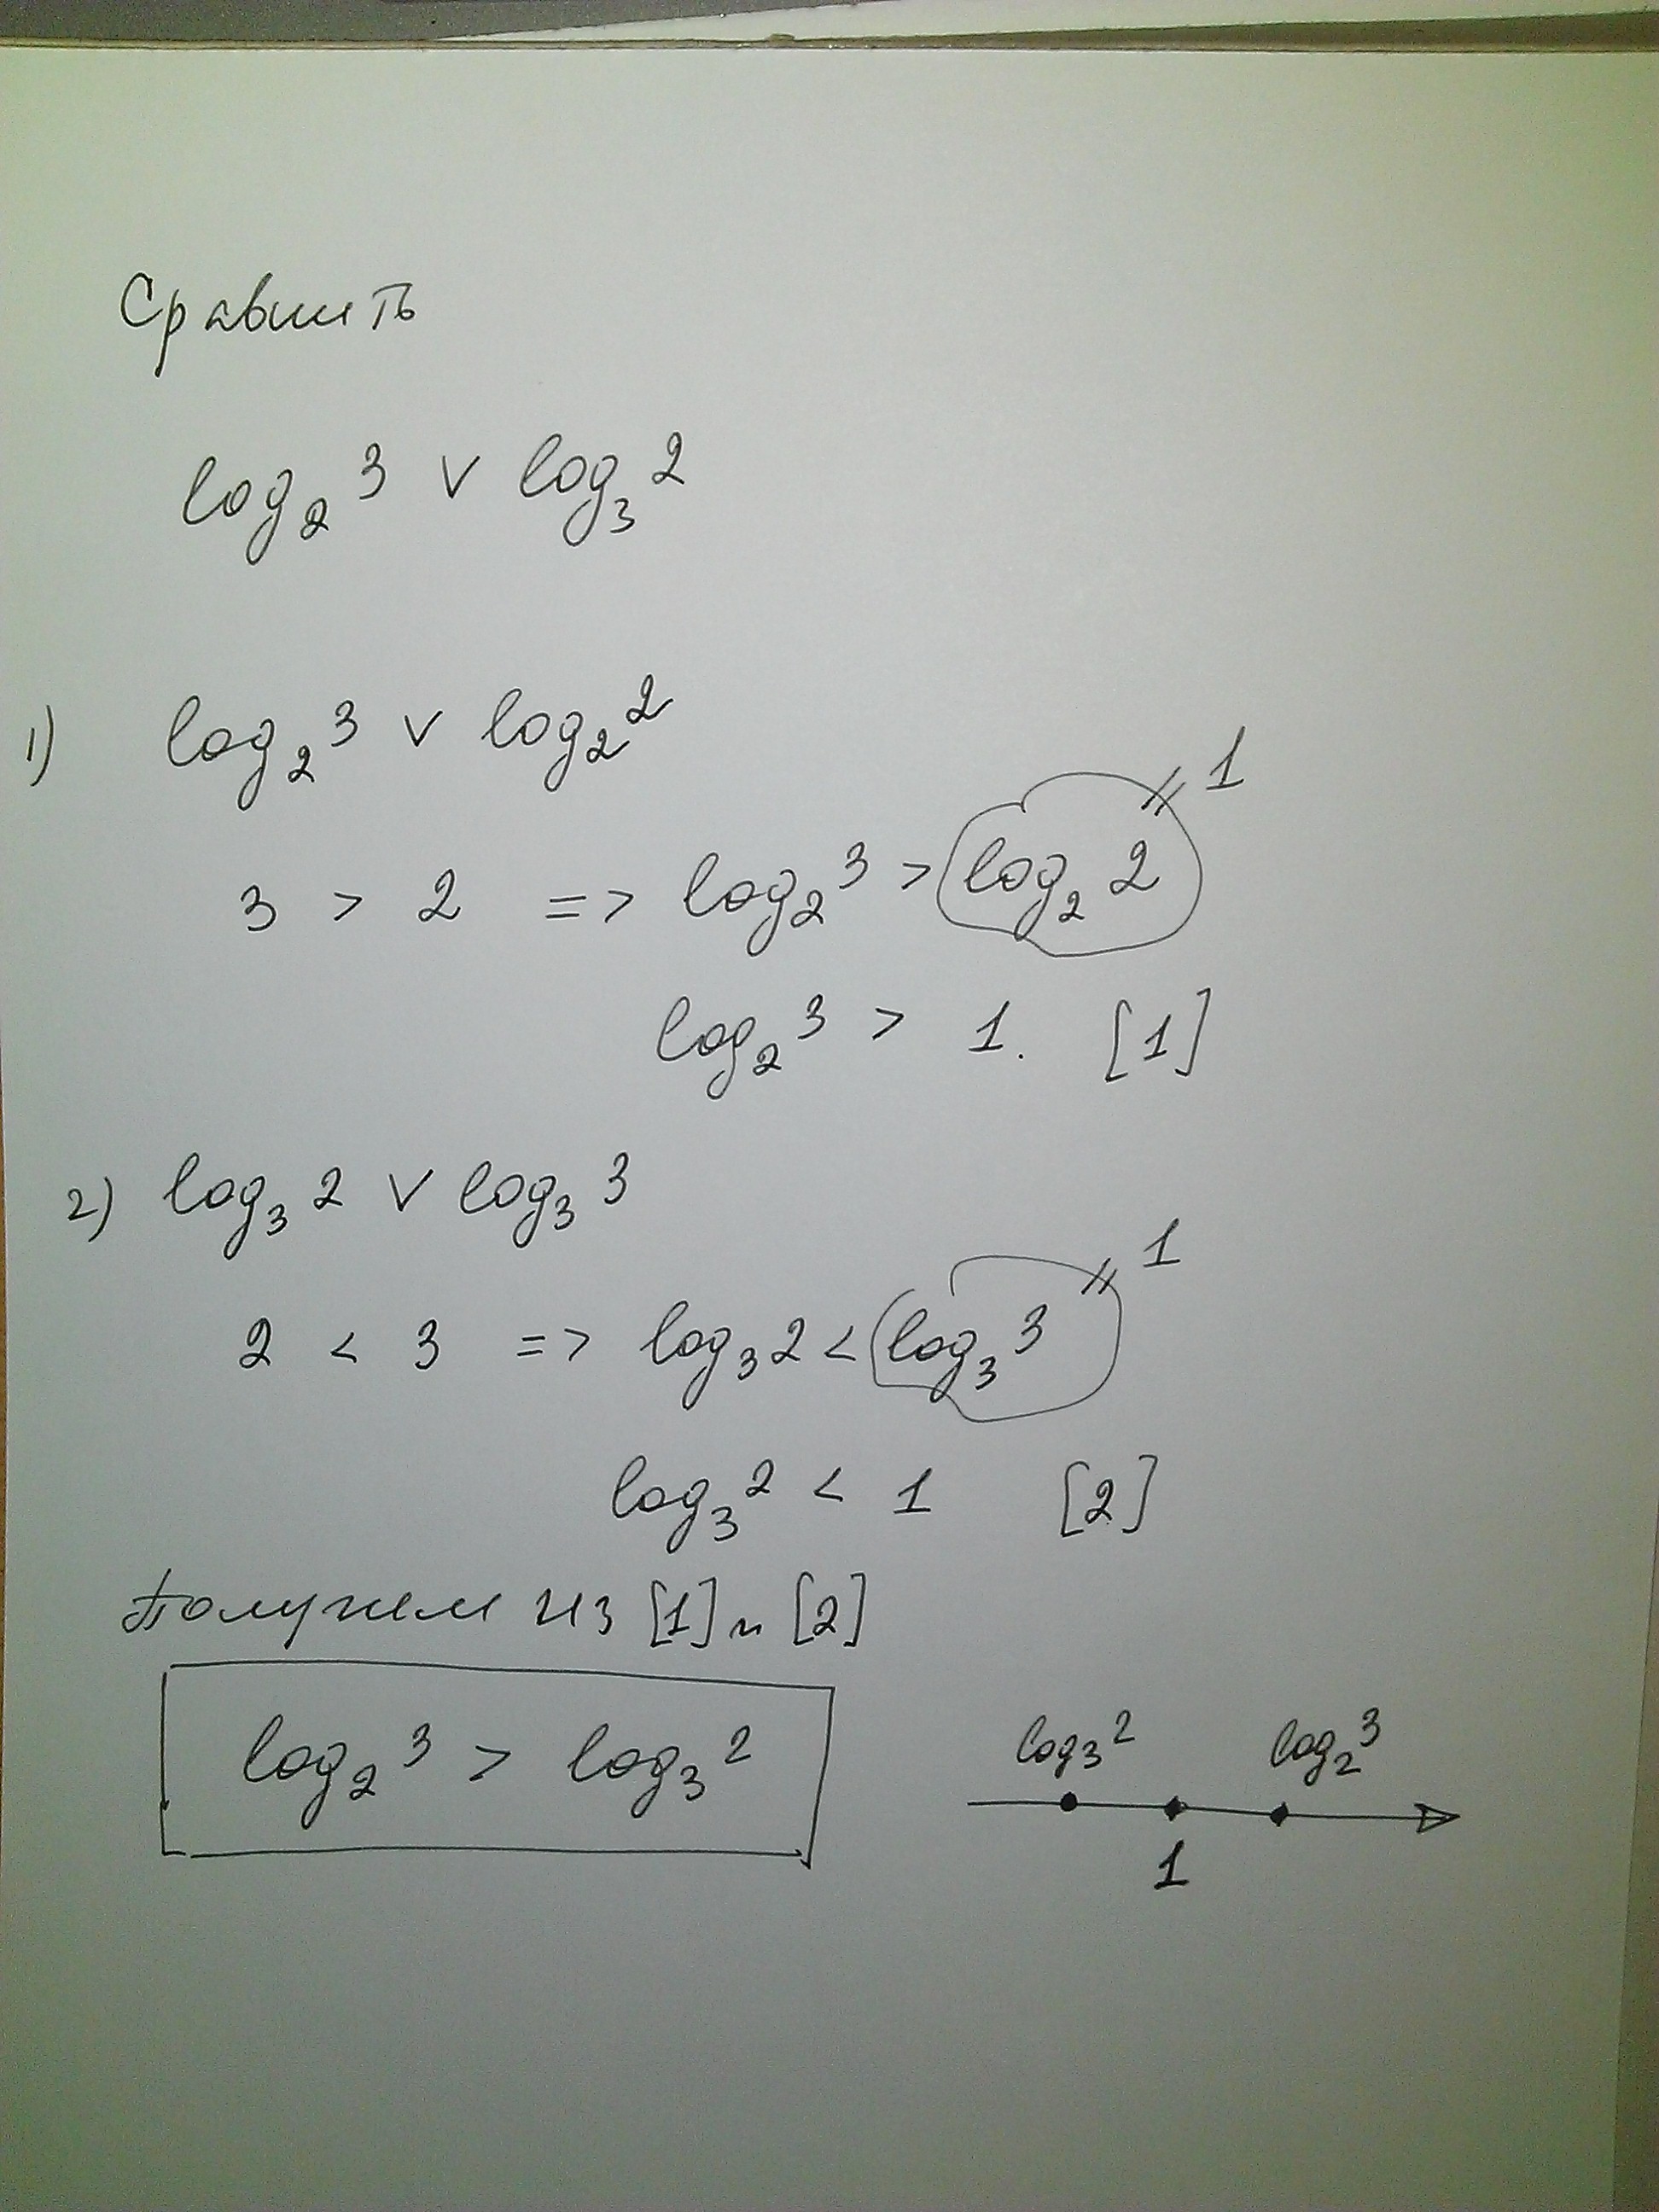 Сравнить
log₂3 ∨ log₃2
1) log₂3 ∨ log₂2
3 > 2 => log₂3 > log₂2 = 1
log₂3 > 1. [1]
2) log₃2 ∨ log₃3
2 < 3 => log₃2 < log₃3 = 1
log₃2 < 1 [2]
Получаем из [1] и [2]
log₂3 > log₃2
log₃2 log₂3
1